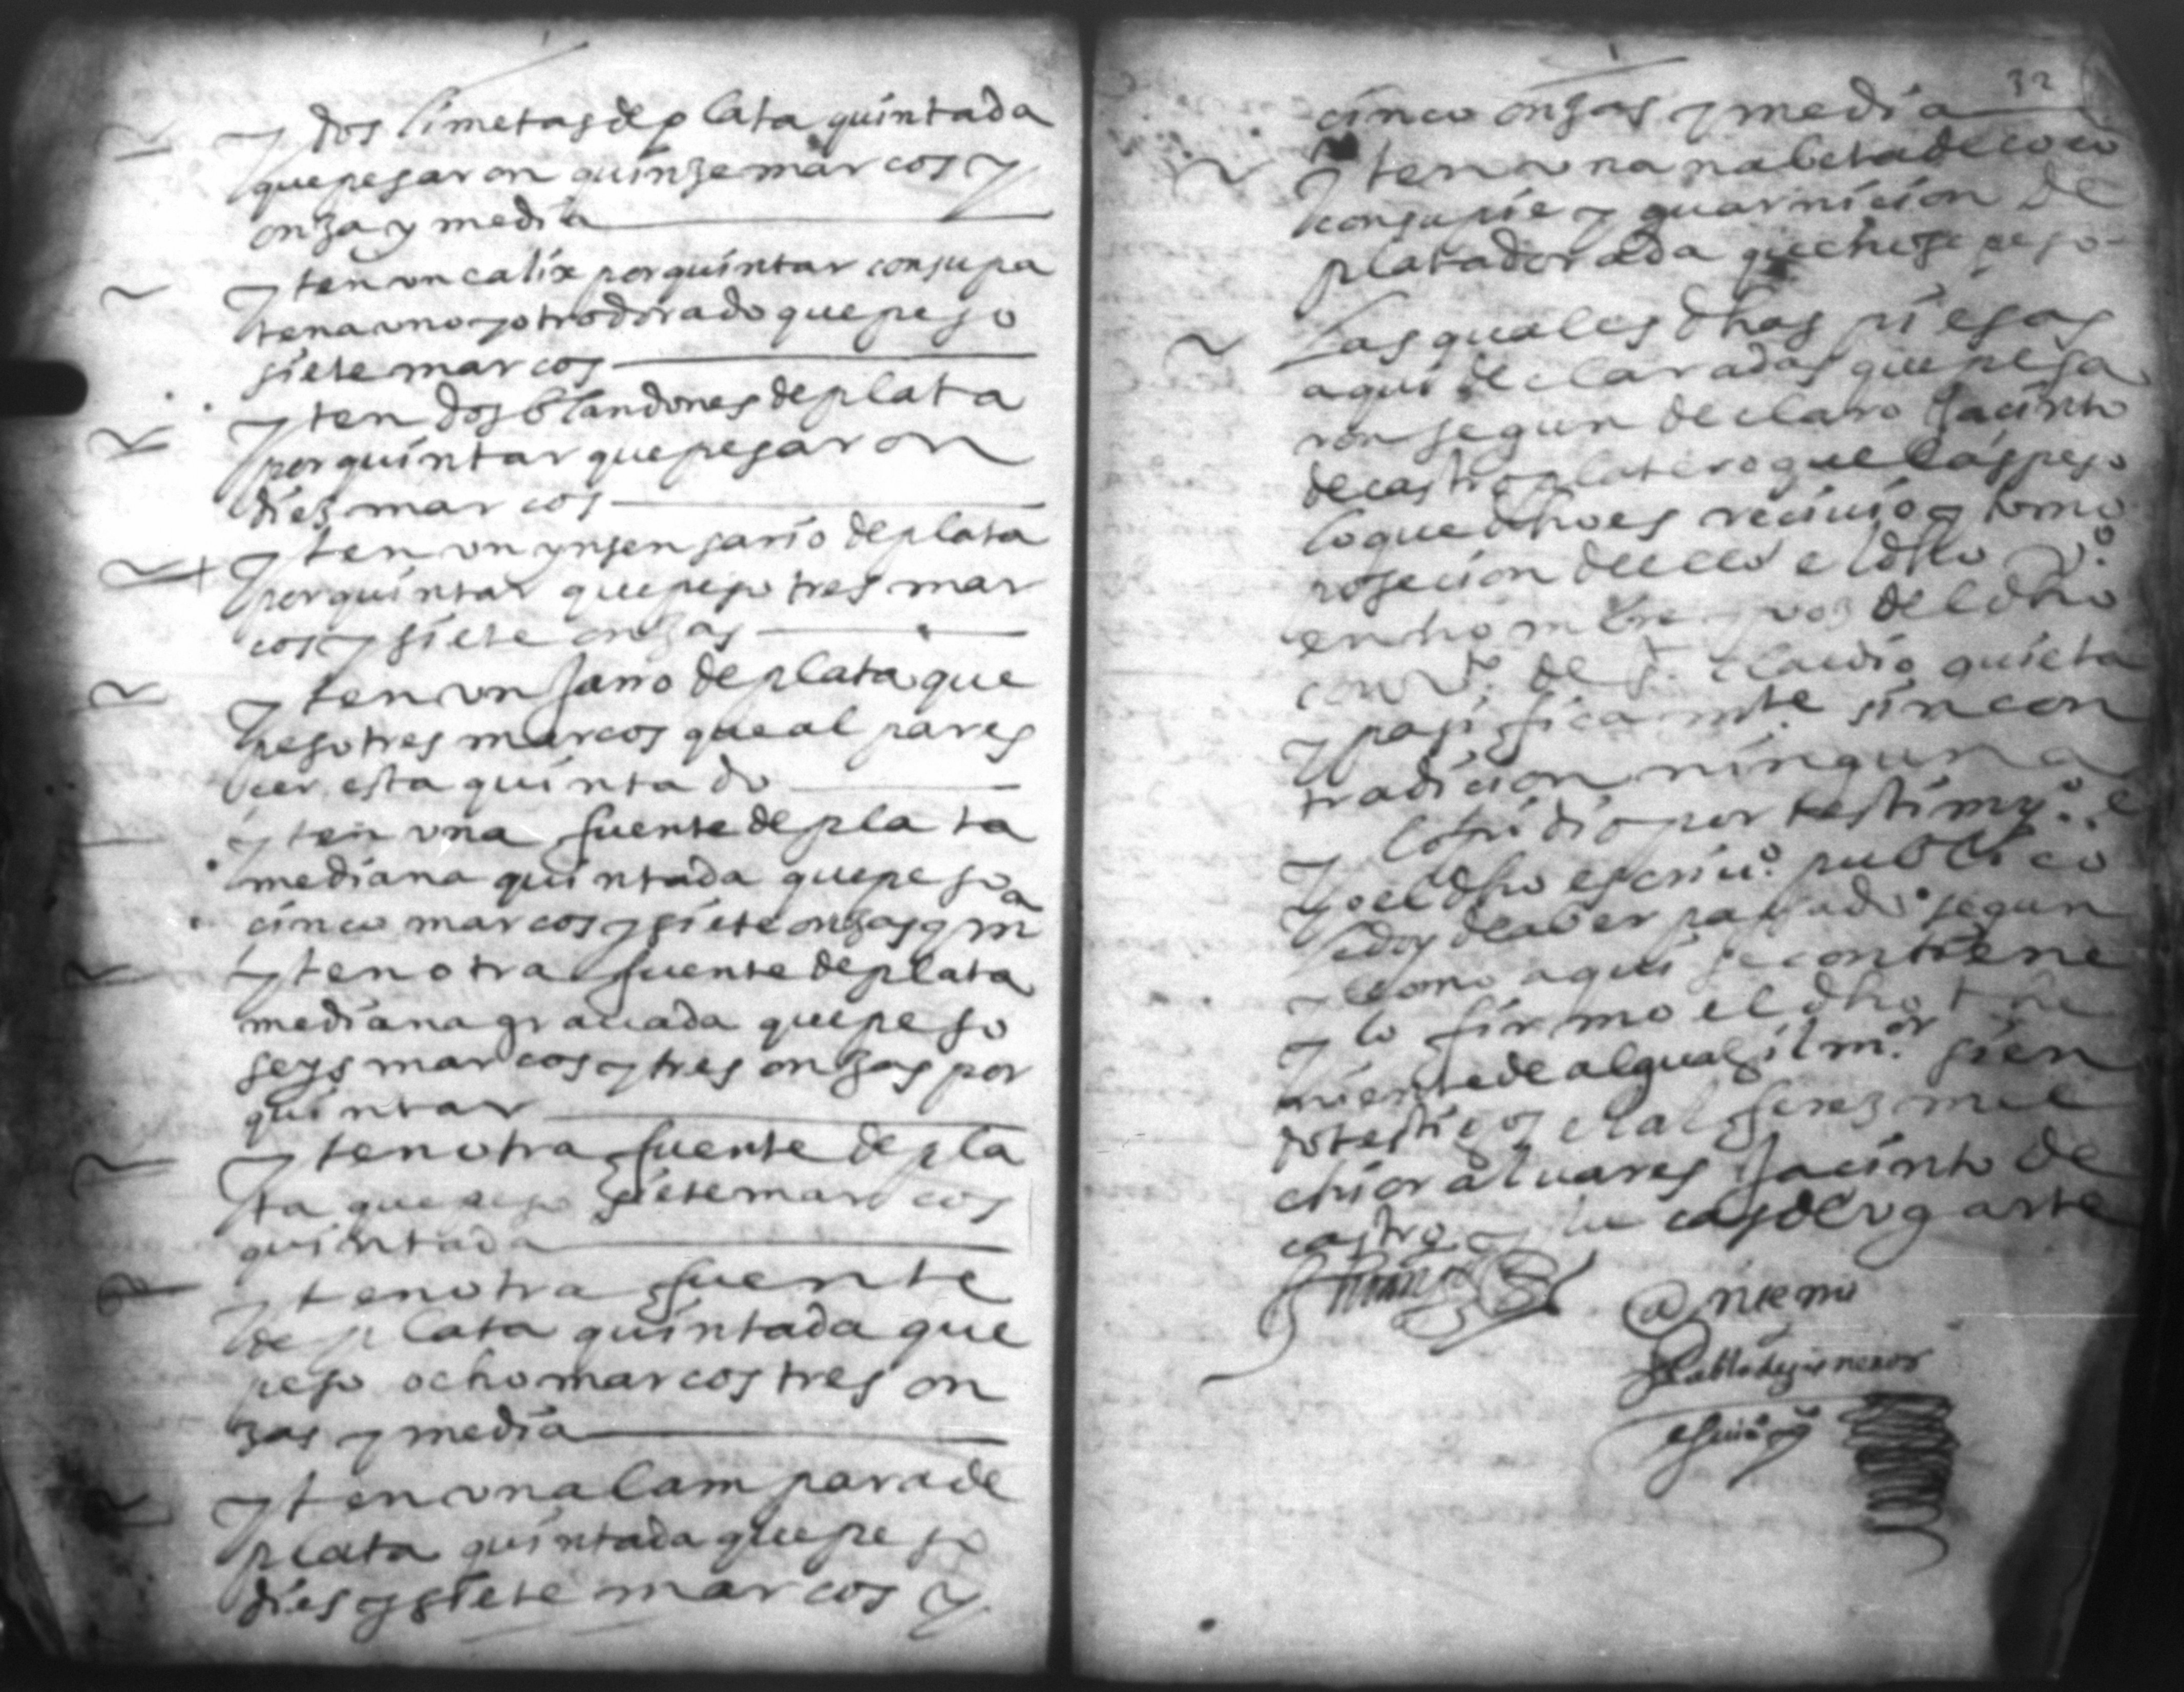 y dos limetas de plata quintada
que pesaron quinze marcos y
onza y media
yten un calix por quintar con su pa
tena uno y otro dorado que peso
siete marcos
yten dos blandones de plata
por quintar que pesaron
diez marcos
yten un ynsensario de plata
por quintar que peso tres mar
cos y siete onzas
yten un jarro de plata que
peso tres marcos que al pares
cer esta quintado
yten una fuente de plata
mediana quintada que peso
cinco marcos y siete onzas y mª
yten otra fuente de plata
mediana gravada que peso
seys marcos y tres onzas por
quintar
yten otra fuente de pla
ta que peso siete marcos
quintada
yten otra fuente
de plata quintada que
peso ocho marcos tres on
zas y media
yten una lampara de
plata quintada que peso
dies y siete marcos y
32
cinco onzas y media
yten una nabeta de coco
con su pie y guarnicion de
plata dorada que peso
Las quales dhas piesas
aqui declaradas que pesa
ron segun declaro Jacinto
de castro platero que las peso
lo que dho es recivio y tomo
posecion de ello el dho
en nombre y voz del dho
convto de s. claudio quieta
y pasificamte sin con
tradicion ninguna
y lo pidio por testimoº e
yo el dho escrivº publico
doy de aber passado segun
y como aqui se contiene
y lo firmo el dho te
niente de alguazil mor sien
do testigos el alferez mel
chior alvares Jacinto de
castro y lucas de ugarte
Ante mi
Pablo
escrivº puº